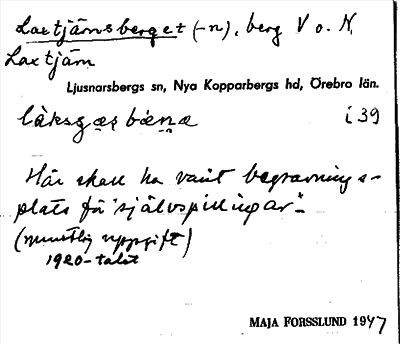 Laxtjärnsberget (-n), berg V o. N
Laxtjärn
Ljusnarsbergs sn, Nya Kopparbergs hd, Örebro län.
i 39
Här skall ha varit begravnings-
plats för "självspillingar".
(muntlig uppgift)
1920-talet
MAJA FORSSLUND 1947